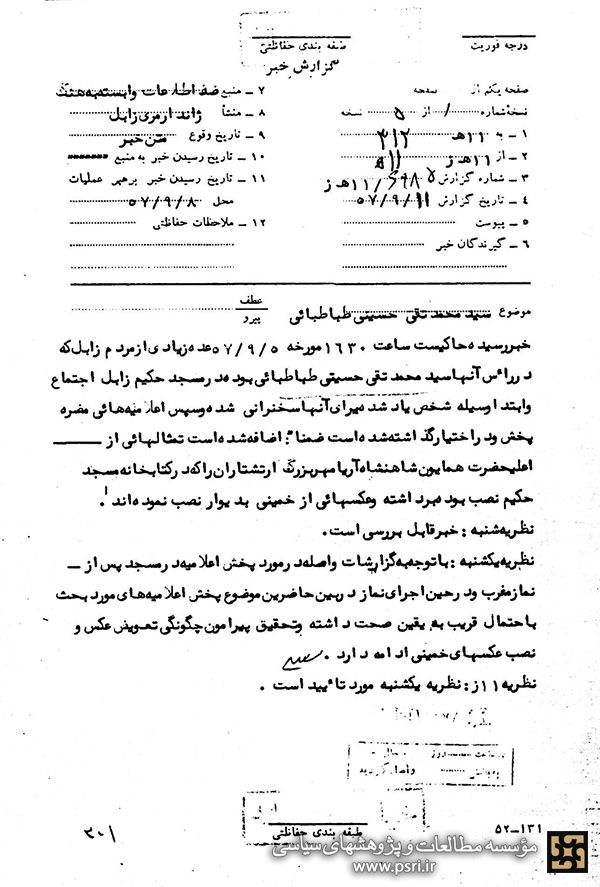 درجه فوریت
طبقه بندی حفاظتی
گزارش خبر
صفحه یکم از صفحه
نسخه‌شماره ۱ از ۵ نسخه
۱ ـ به ۱۱هـ ۳۱۲
۲ ـ از ۱۱هـ ز
۳ ـ شماره گزارش ۱۱/هـ ز
۴ ـ تاریخ گزارش ۵۷/۹/۱۱
۵ ـ پیوست
۶ ـ گیرندگان خبر
۷ ـ منبع ضد اطلاعات وابسته به هنگ
۸ ـ منشأ ژاندارمری زابل
۹ ـ تاریخ وقوع متن خبر
۱۰ ـ تاریخ رسیدن خبر به منبع
۱۱ ـ تاریخ رسیدن خبر برهبر عملیات
محل ۵۷/۹/۸
۱۲ ـ ملاحظات حفاظتی
موضوع سید محمد تقی حسینی طباطبائی
عطف
پیرو
خبر رسیده حاکیست ساعت ۱۶۳۰ مورخه ۵۷/۹/۵ عده زیادی از مردم زابل که
در رأس آنها سید محمد تقی حسینی طباطبائی بوده در مسجد حکیم زابل اجتماع
وابتدا وسیله شخص یاد شده برای آنها سخنرانی شده وسپس اعلامیه هائی مضره
پخش ودر اختیار گذاشته شده است ضمنا" اضافه شده است تمثالهائی از ـــــ
اعلیحضرت همایون شاهنشاه آریامهر بزرگ ارتشتاران را که در کتابخانه مسجد
حکیم نصب بوده برداشته وعکسهائی از خمینی بدیوار نصب نموده اند .
نظریه شنبه : خبر قابل بررسی است .
نظریه یکشنبه : با توجه به گزارشات واصله در مورد پخش اعلامیه در مسجد پس از ـــ
نماز مغرب ودر حین اجرای نماز در بین حاضرین موضوع پخش اعلامیه های مورد بحث
با احتمال قریب به یقین صحت داشته وتحقیق پیرامون چگونگی تعویض عکس و
نصب عکسهای خمینی ادامه دارد .
نظریه ۱۱ز : نظریه یکشنبه مورد تائید است .
واصل گردید
طبقه بندی حفاظتی
۵۲ـ۱۳۱
۳۰۱
مؤسسه مطالعات و پژوهشهای سیاسی
www.psri.ir